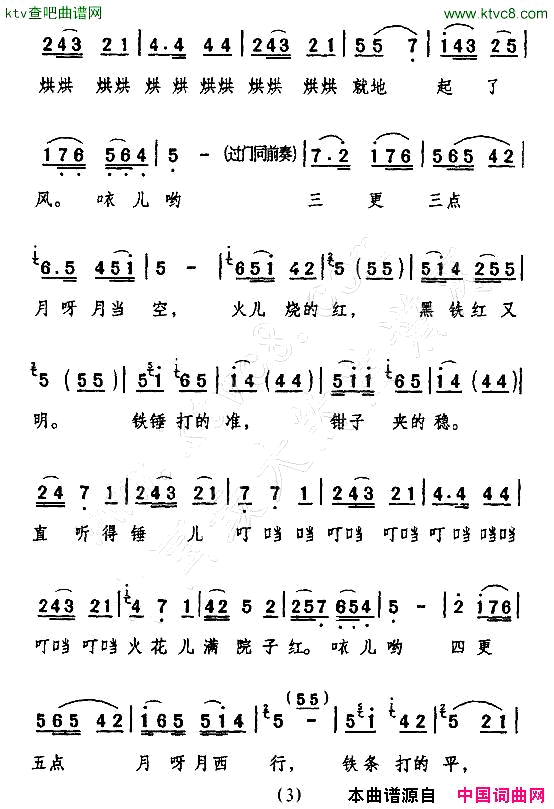 ktv查吧曲谱网 www.ktvc8.com
243 21 | 4·4 44 | 243 21 | 55 7 | 143 25 |
烘烘 烘烘 烘 烘 烘烘 烘烘 烘烘 就地 起 了
176 564 | 5 - (过门同前奏) | 7·2 176 | 565 42 |
风。 咴 儿 哟 三 更 三点
6·5 451 | 5 - | 651 42 | 5 (55) | 514 255 |
月 呀 月当 空, 火儿 烧的 红, 黑 铁 红 又
5 (55) | 51 65 | 14 (44) | 511 65 | 14 (44) |
明。 铁锤 打的 准, 钳子 夹的 稳。
24 7 1 | 243 21 | 7 7 1 | 243 21 | 4·4 44 |
直 听得 锤 儿 叮 当 当 叮当 叮当 叮 当 当当
243 21 | 4 7 1 | 42 5 2 | 257 654 | 5 - | 2 176 |
叮当 叮当 火 花 儿 满 院 子 红。 咴 儿 哟 四 更
565 42 | 165 514 | 5 (55) - | 5 1 42 | 5 21 |
五点 月 呀 月西 行, 铁条 打的 平,
(3) 本曲谱源自 中国词曲网